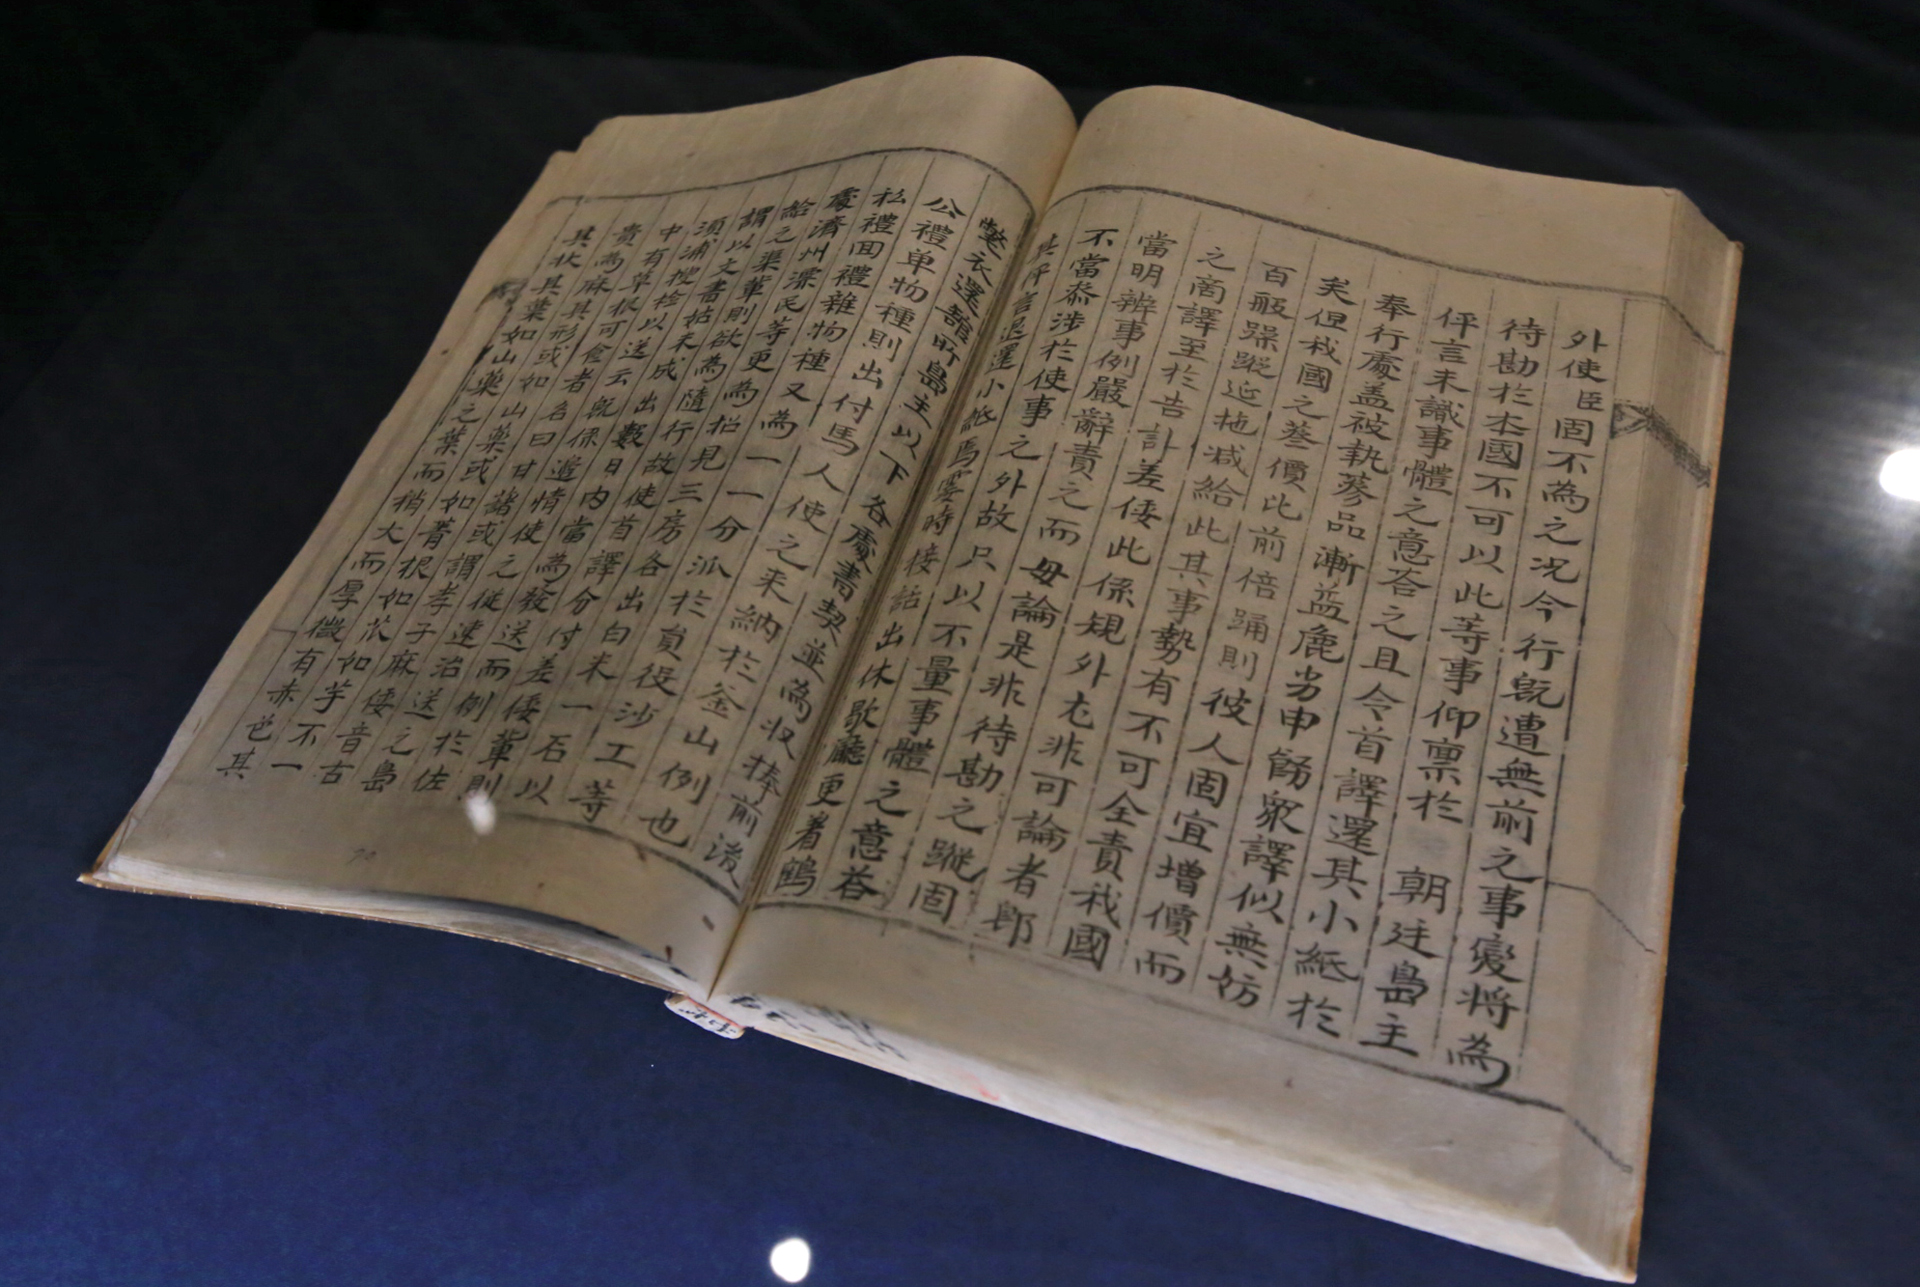 外使臣固不為之況今行旣遭無前之事變將為
待勘於本國不可以此等事仰稟於 朝廷島主
伻言未識事體之意答之且令首譯還其小紙於
奉行處盖被執蔘品漸益麁劣申飭衆譯似無妨
矣但我國之蔘價比前倍踊則彼人固宜增價而
百般躁蹤延拖减給此其事勢有不可全責我國
之商譯至於告訃差倭此係規外尤非可論者郎
當明辨事例嚴辭責之而毋論是非待勘之蹤固
不當叅涉於使事之外故只以不量事體之意答
其伻言退還小紙焉霎時接話出休歇廳更着鶴
氅衣還舘所島主以下各處書契並為收捧前後
公禮单物種則出付馬人使之来納於釜山例也
私禮回禮雜物種又為一一分派於員役沙工等
處濟州漂民等更為招見三房各出白米一石以
給之渠輩則欲為隨行故使首譯分付差倭輩則
謂以文書姑未成出數日內當為發送而刷於佐
須浦搜檢以送云旣係邊情使之從速治送之島
中有草根可食者名曰甘藷或謂孝子麻倭音古
貴為麻其形或如山藥或如菁根如苽如芋不一
其狀其葉如山藥之葉而稍大而厚微有赤色其